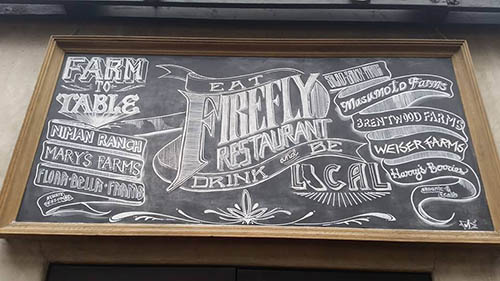 FARM
TO
TABLE
NIMAN RANCH
MARY'S FARMS
FLORA BELLA FARMS
EAT
FIREFLY
RESTAURANT
DRINK and BE
LOCAL
MASUMOTO FARMS
BRENTWOOD FARMS
WEISER FARMS
Harry's Berries